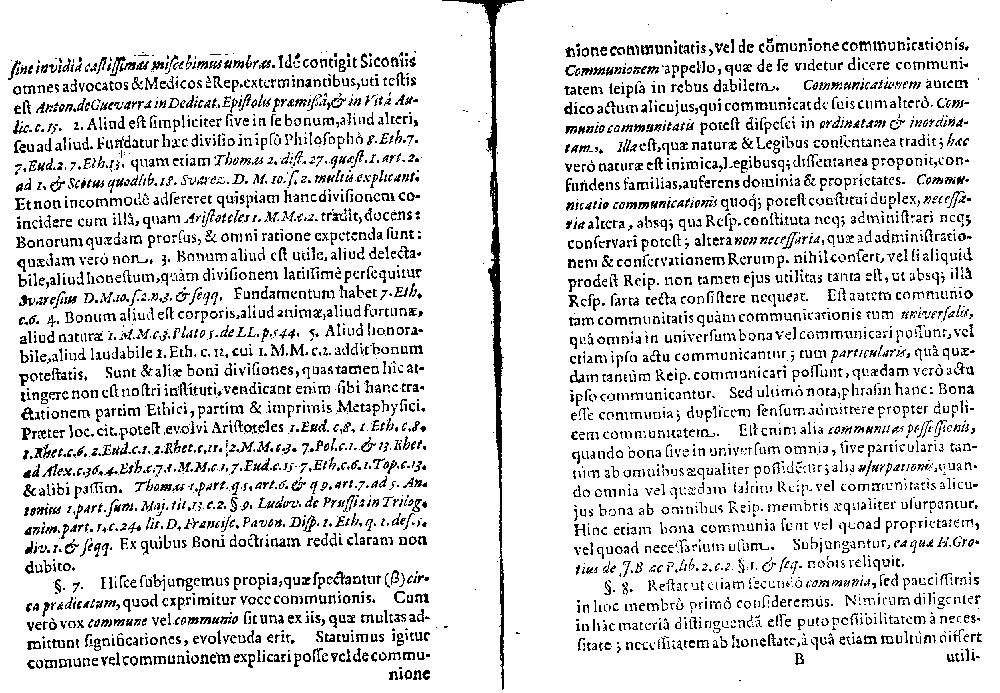 sine invidiâ castissimas miscebimus umbras. Idẽ contigit Siconiis
omnes advocatos & Medicos è Rep. exterminantibus, uti testis
est Anton. de Guevarra in Dedicat. Epistolis præmissâ, & in Vitâ Au-
lic. c. 15. 2. Aliud est simpliciter sive in se bonum, aliud alteri,
seu ad aliud. Fundatur hæc divisio in ipsô Philosophô 8. Eth. 7.
7. Eud. 2. 7. Eth. 13. quam etiam Thomas 2. dist. 27. quæst. 1. art. 2.
ad 1. & Scotus quodlib. 18. Svarez. D. M. 10. s. 2. multis explicant.
Et non incommodè adsereret quispiam hanc divisionem co-
incidere cum illâ, quam Aristoteles 1. M. M. c. 2. tradit, docens:
Bonorum quædam prorsus, & omni ratione expetenda sunt:
quædam verò non. 3. Bonum aliud est utile, aliud delecta-
bile, aliud honestum, quàm divisionem latissimè persequitur
Svaresius D. M. 10. s. 2. n. 3. & seqq. Fundamentum habet 7. Eth.
c. 6. 4. Bonum aliud est corporis, aliud animæ, aliud fortunæ,
aliud naturæ 1. M. M. c. 3. Plato 5. de LL. p. 544. 5. Aliud honora-
bile, aliud laudabile 1. Eth. c. 12, cui 1. M. M. c. 2. addit bonum
potestatis. Sunt & aliæ boni divisiones, quas tamen hic at-
tingere non est nostri instituti, vendicant enim sibi hanc tra-
ctationem partim Ethici, partim & imprimis Metaphysici.
Præter loc. cit. potest evolvi Aristoteles 1. Eud. c. 8, 1. Eth. c. 8.
1. Rhet. c. 6. 2. Eud. c. 1. 2. Rhet. c. 11. 2. M. M. c. 3. 7. Pol. c. 1. & 13. Rhet.
ad Alex. c. 36. 4. Eth. c. 7. 1. M. M. c. 1. 7. Eud. c. 15. 7. Eth. c. 6. 1. Top. c. 13.
& alibi passim. Thomas 1. part. q. 5. art. 6. & q 9. art. 7. ad 5. An-
tonius 1. part. sum. Maj. tit. 13. c. 2. §. 9. Ludov. de Prussia in Trilog.
anim. part. 1. c. 24. lit. D. Francisc. Pavon. Disp. 1. Eth. q. 1. def. 1.
div. 1. & seqq. Ex quibus Boni doctrinam reddi claram non
dubito.
§. 7. Hisce subjungemus propia, quæ spectantur (β) cir-
ca prædicatum, quod exprimitur voce communionis. Cum
verò vox commune vel communio sit una ex iis, quæ multas ad-
mittunt significationes, evolvenda erit. Statuimus igitur
commune vel communionem explicari posse vel de commu-
nione
nione communitatis, vel de cõmunione communicationis.
Communionem appello, quæ de se videtur dicere communi-
tatem seipsâ in rebus dabilem. Communicationem autem
dico actum alicujus, qui communicat de suis cum alterô. Com-
munio communitatis potest dispesci in ordinatam & inordina-
tam. Illa est, quæ naturæ & Legibus consentanea tradit; hæc
verò naturæ est inimica, Legibusq; dissentanea proponit, con-
fundens familias, auferens dominia & proprietates. Commu-
nicatio communicationis quoq; potest constitui duplex, necessa-
ria altera, absq; quâ Resp. constituta neq; administrari neq;
conservari potest; altera non necessaria, quæ ad administratio-
nem & conservationem Rerump. nihil confert, vel si aliquid
prodest Reip. non tamen ejus utilitas tanta est, ut absq; illâ
Resp. sarta tecta consistere nequeat. Est autem communio
tam communitatis quàm communicationis tum universalis,
quâ omnia in universum bona vel communicari possunt, vel
etiam ipso actu communicantur; tum particularis, quâ quæ-
dam tantùm Reip. communicari possunt, quædam verò actu
ipso communicantur. Sed ultimô nota, phrasin hanc: Bona
esse communia; duplicem sensum admittere propter dupli-
cem communitatem. Est enim alia communitas possessionis,
quando bona sive in universum omnia, sive particularia tan-
tùm ab omnibus æqualiter possidẽtur; alia usurpationis, quan-
do omnia vel quædam saltim Reip. vel communitatis alicu-
jus bona ab omnibus Reip. membris æqualiter usurpantur.
Hinc etiam bona communia sunt vel quoad proprietatem,
vel quoad necessarium usum. Subjungantur, ea quæ H. Gro-
tius de J. B ac P. lib. 2. c. 2. §. 1. & seq. nobis reliquit.
§. 8. Restat ut etiam secundò communia, sed paucissimis
in hoc membrô primô consideremus. Nimirum diligenter
in hâc materiâ distinguendâ esse puto possibilitatem à neces-
sitate; necessitatem ab honestate, à quâ etiam multùm differt
B
utili-